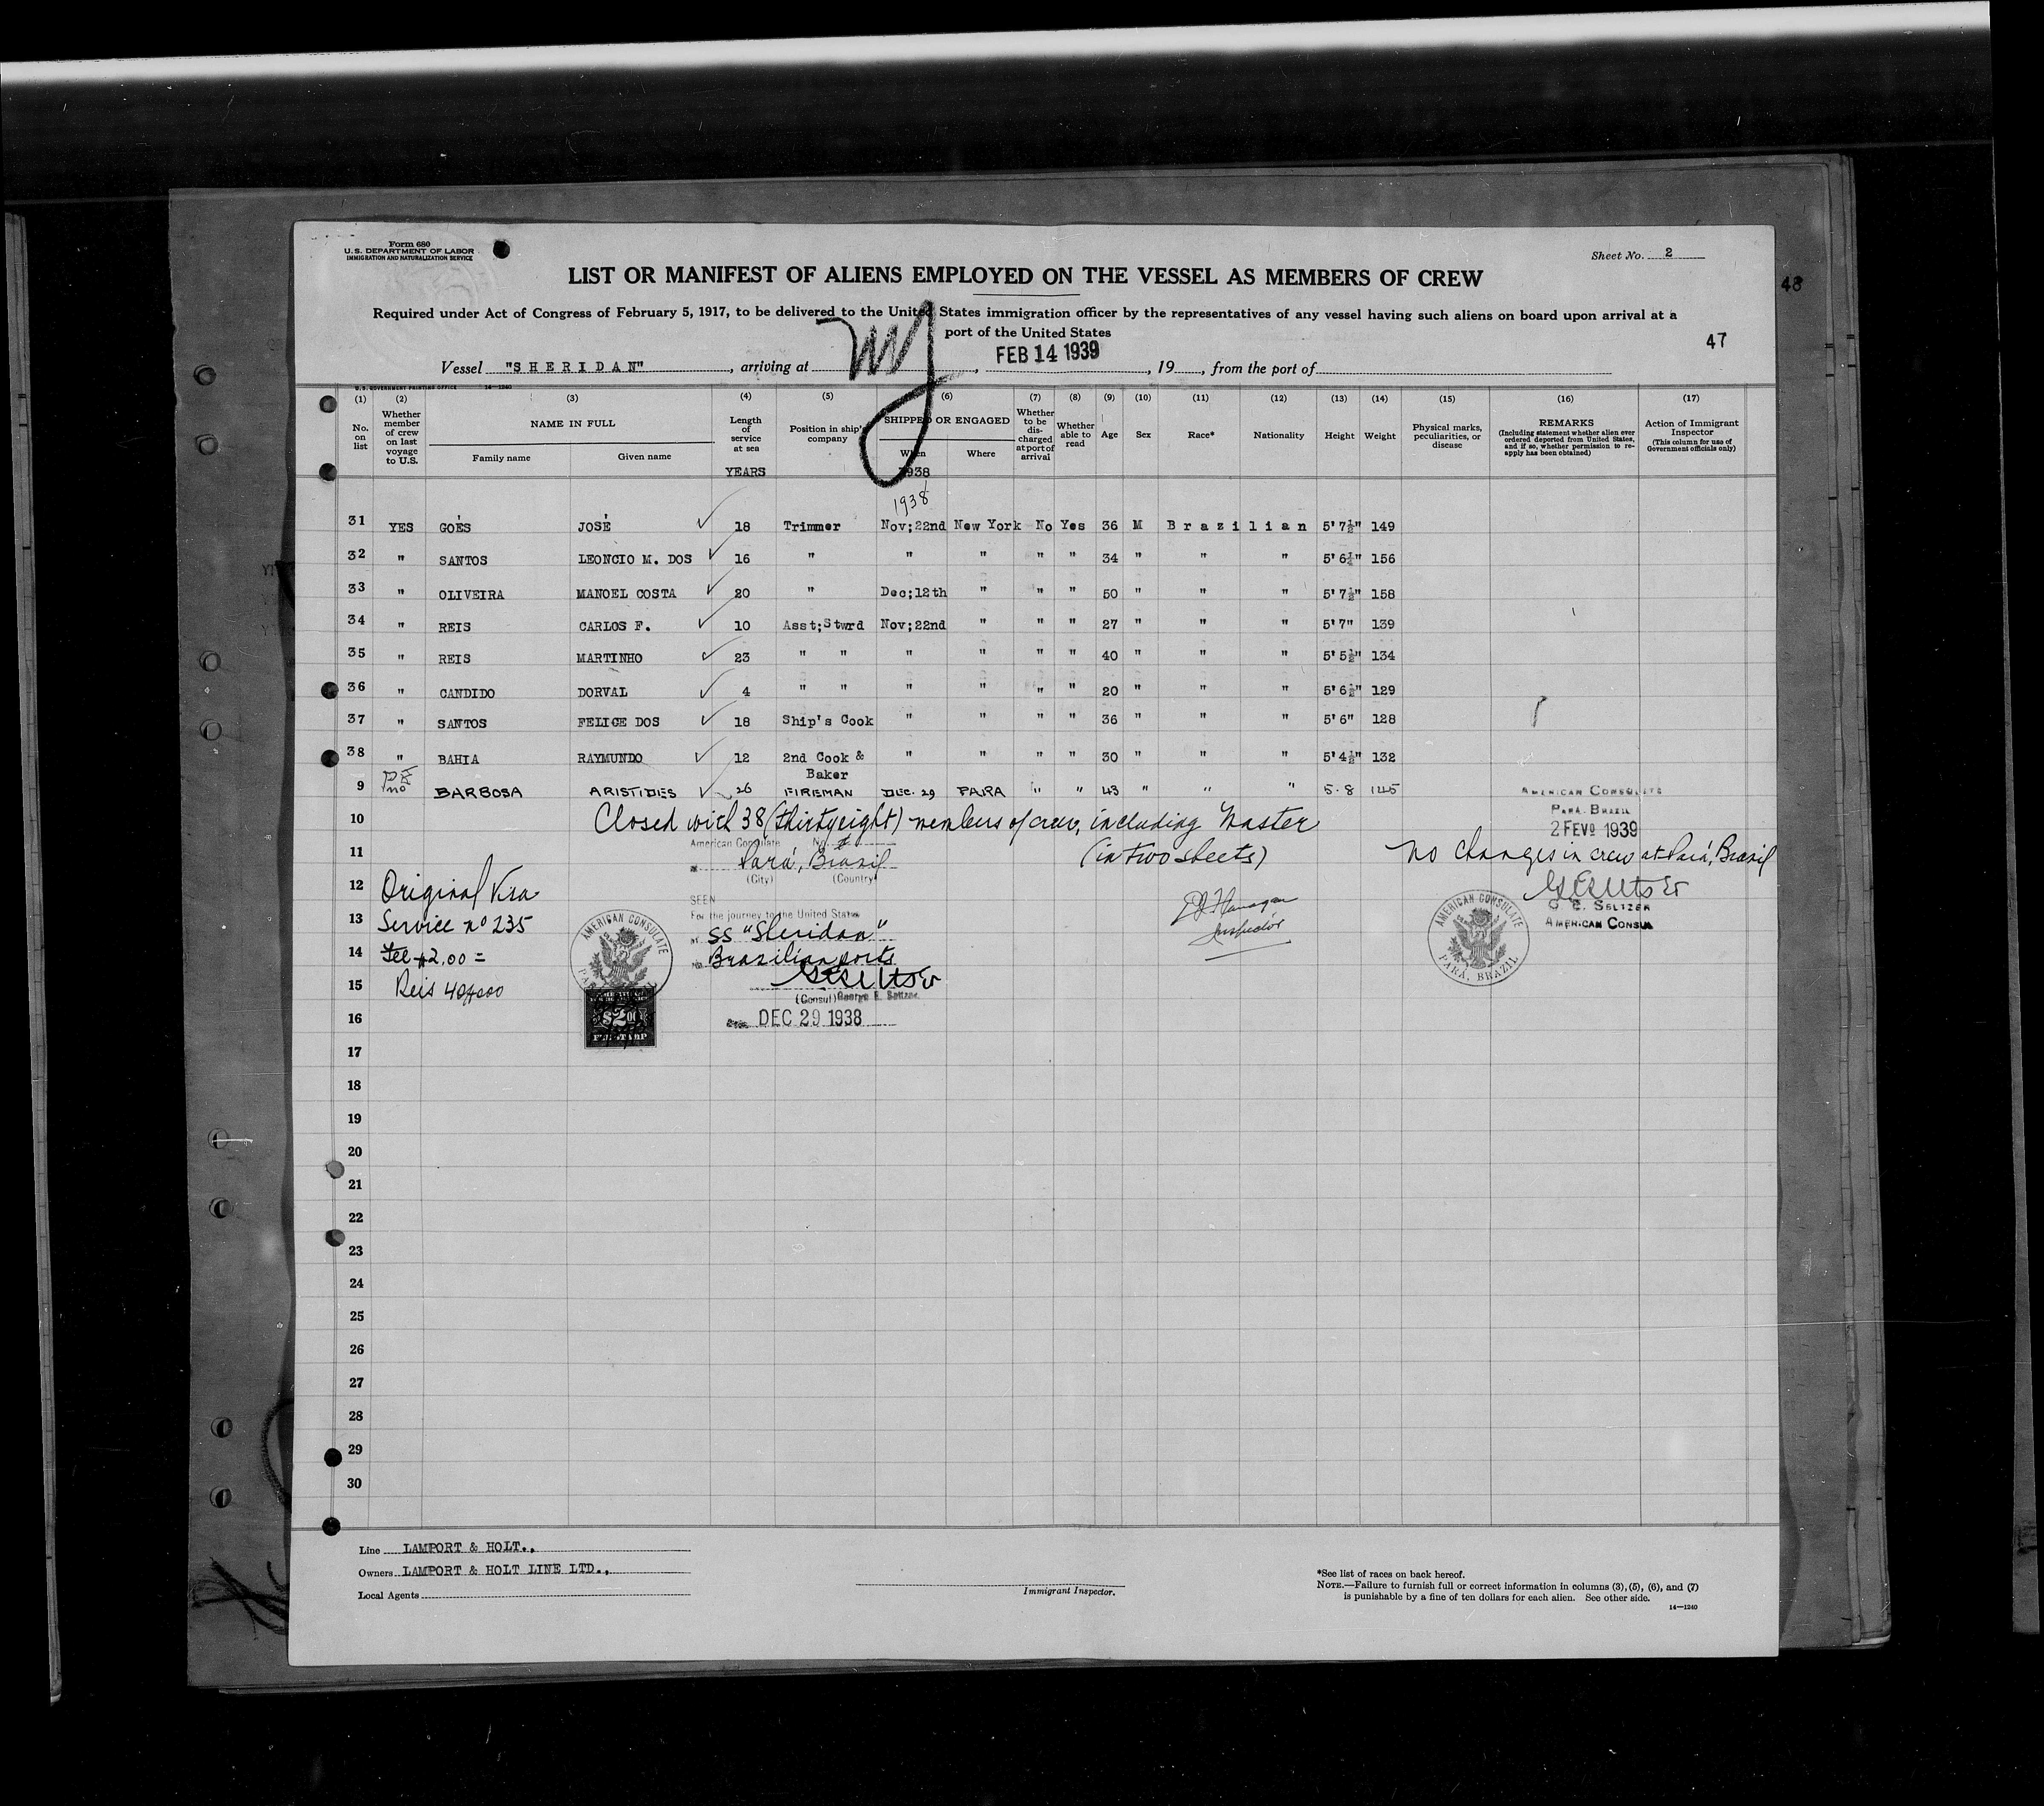 Form 680
U.S. DEPARTMENT OF LABOR
IMMIGRATION AND NATURALIZATION SERVICE
Sheet No. 2
LIST OR MANIFEST OF ALIENS EMPLOYED ON THE VESSEL AS MEMBERS OF CREW
48
Required under Act of Congress of February 5, 1917, to be delivered to the United States immigration officer by the representatives of any vessel having such aliens on board upon arrival at a
port of the United States
47
Vessel "SHERIDAN", arriving at NY, FEB 14 1939, 19, from the port of
U.S. GOVERNMENT PRINTING OFFICE 14—1240
(1) No. on list
(2) Whether member of crew on last voyage to U.S.
(3) NAME IN FULL Family name Given name
(4) Length of service at sea YEARS
(5) Position in ship's company
(6) SHIPPED OR ENGAGED When 1938 Where
(7) Whether to be discharged at port of arrival
(8) Whether able to read
(9) Age
(10) Sex
(11) Race*
(12) Nationality
(13) Height
(14) Weight
(15) Physical marks, peculiarities, or disease
(16) REMARKS (Including statement whether alien ever ordered deported from United States, and if so, whether permission to reapply has been obtained)
(17) Action of Immigrant Inspector (This column for use of Government officials only)
1938
31 YES GOÉS JOSÉ 18 Trimmer Nov;22nd New York No Yes 36 M Brazilian 5'7½" 149
32 " SANTOS LEONCIO M. DOS 16 " " " " " 34 " " " 5'6½" 156
33 " OLIVEIRA MANOEL COSTA 20 " Dec;12th " " " 50 " " " 5'7½" 158
34 " REIS CARLOS F. 10 Asst;Stwrd Nov;22nd " " " 27 " " " 5'7" 139
35 " REIS MARTINHO 23 " " " " " " 40 " " " 5'5½" 134
36 " CANDIDO DORVAL 4 " " " " " " 20 " " " 5'6½" 129
37 " SANTOS FELICE DOS 18 Ship's Cook " " " " 36 " " " 5'6" 128
38 " BAHIA RAYMUNDO 12 2nd Cook & Baker " " " " 30 " " " 5'4½" 132
9 no BARBOSA ARISTIDES 26 FIREMAN DEC. 29 PARA " " 43 " " " 5.8 145
AMERICAN CONSULATE
PARÁ. BRAZIL
2 FEVO 1939
10 Closed with 38 (thirtyeight) members of crew, including Master
11 (in two sheets)
No changes in crew at Pará, Brazil
G. E. SELTZER
AMERICAN CONSUL
AMERICAN CONSULATE PARÁ, BRAZIL
American Consulate No.
Pará, Brasil
(City) (Country)
12 Original Visa
13 Service no 235
14 Fee $2.00 =
15 Reis
SEEN
For the journey to the United States
SS "Sheridan"
Brazilian ports
(Consul) George E. Seltzer
DEC 29 1938
AMERICAN CONSULATE
$2.00
FEE STAMP
Inspector
16
17
18
19
20
21
22
23
24
25
26
27
28
29
30
Line LAMPORT & HOLT.,
Owners LAMPORT & HOLT LINE LTD.,
Local Agents
Immigrant Inspector.
*See list of races on back hereof.
NOTE.—Failure to furnish full or correct information in columns (3), (5), (6), and (7)
is punishable by a fine of ten dollars for each alien. See other side.
14—1240